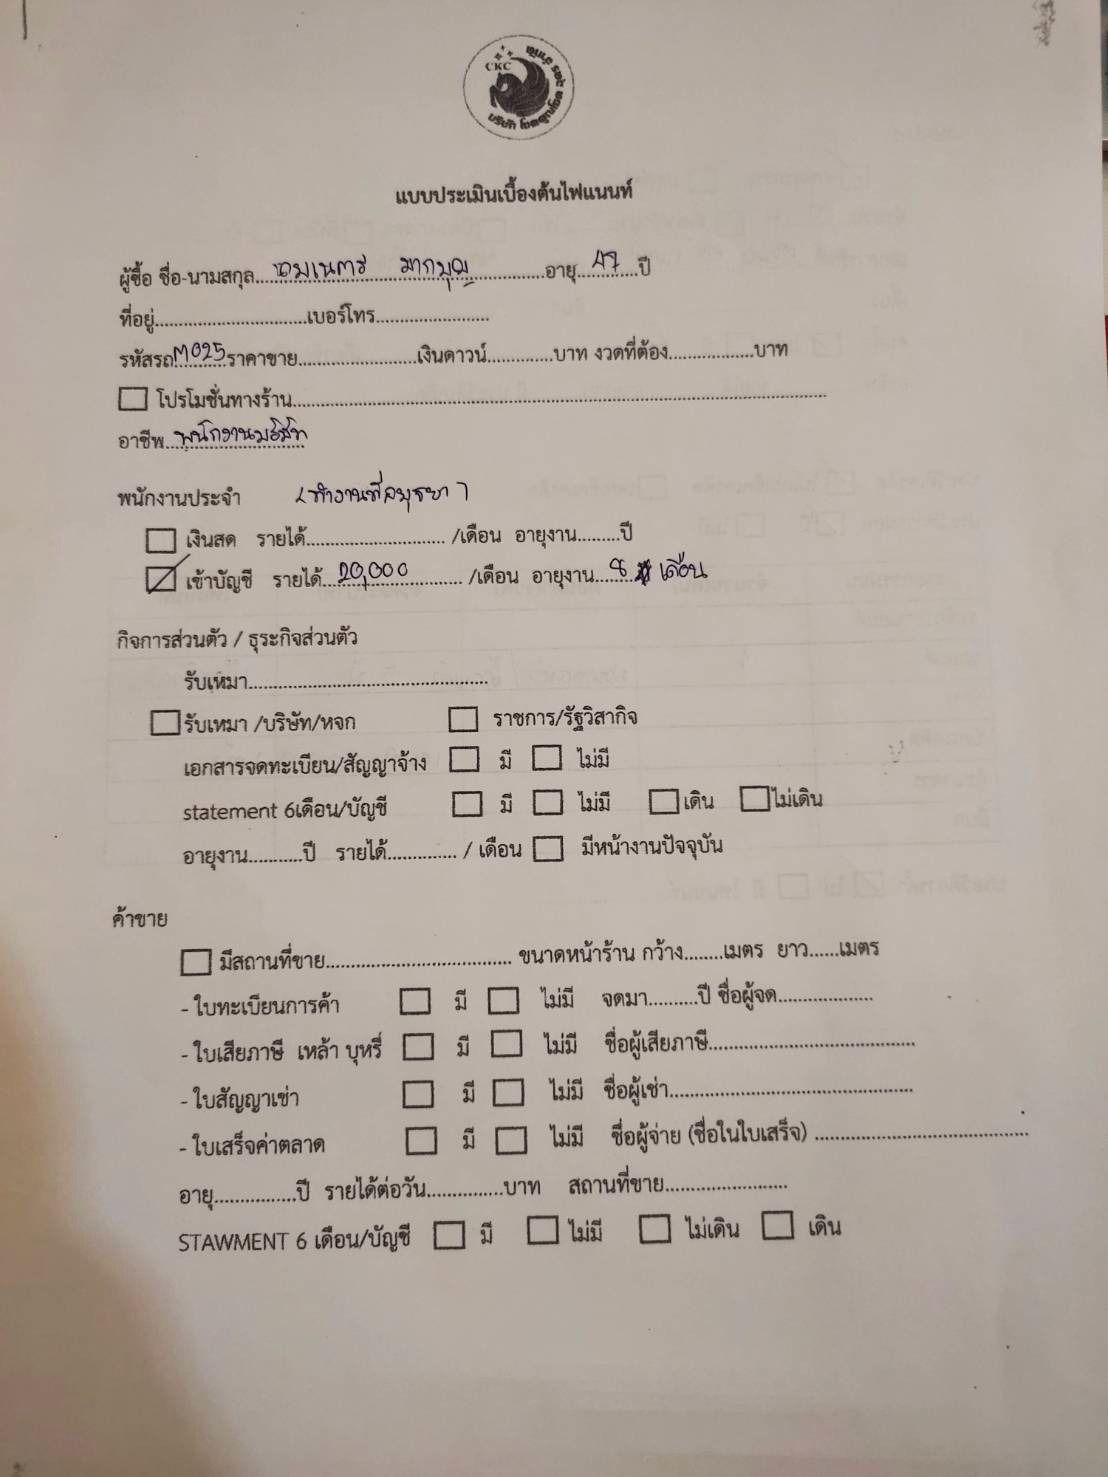 CKC
บริษัท โชคคูณโชค
แบบประเมินเบื้องต้นไฟแนนท์
ผู้ซื้อ ชื่อ-นามสกุล.............มากบุญ.............อายุ...47...ปี
ที่อยู่.............................เบอร์โทร......................
รหัสรถM025ราคาขาย......................เงินดาวน์.............บาท งวดที่ต้อง................บาท
☐ โปรโมชั่นทางร้าน..........................................................................
อาชีพ..พนักงานบริษัท
พนักงานประจำ (ทำงานที่อยุธยา)
☐ เงินสด รายได้.......................... /เดือน อายุงาน.........ปี
☑ เข้าบัญชี รายได้...20,000.......... /เดือน อายุงาน...8 เดือน
กิจการส่วนตัว / ธุระกิจส่วนตัว
รับเหมา.............................................
☐ รับเหมา /บริษัท/หจก ☐ ราชการ/รัฐวิสากิจ
เอกสารจดทะเบียน/สัญญาจ้าง ☐ มี ☐ ไม่มี
statement 6เดือน/บัญชี ☐ มี ☐ ไม่มี ☐ เดิน ☐ ไม่เดิน
อายุงาน...........ปี รายได้.............. / เดือน ☐ มีหน้างานปัจจุบัน
ค้าขาย
☐ มีสถานที่ขาย................................... ขนาดหน้าร้าน กว้าง........เมตร ยาว......เมตร
- ใบทะเบียนการค้า ☐ มี ☐ ไม่มี จดมา..........ปี ชื่อผู้จด...................
- ใบเสียภาษี เหล้า บุหรี่ ☐ มี ☐ ไม่มี ชื่อผู้เสียภาษี.......................................
- ใบสัญญาเช่า ☐ มี ☐ ไม่มี ชื่อผู้เช่า..............................................
- ใบเสร็จค่าตลาด ☐ มี ☐ ไม่มี ชื่อผู้จ่าย (ชื่อในใบเสร็จ) .......................................
อายุ................ปี รายได้ต่อวัน...............บาท สถานที่ขาย.......................
STAWMENT 6 เดือน/บัญชี ☐ มี ☐ ไม่มี ☐ ไม่เดิน ☐ เดิน